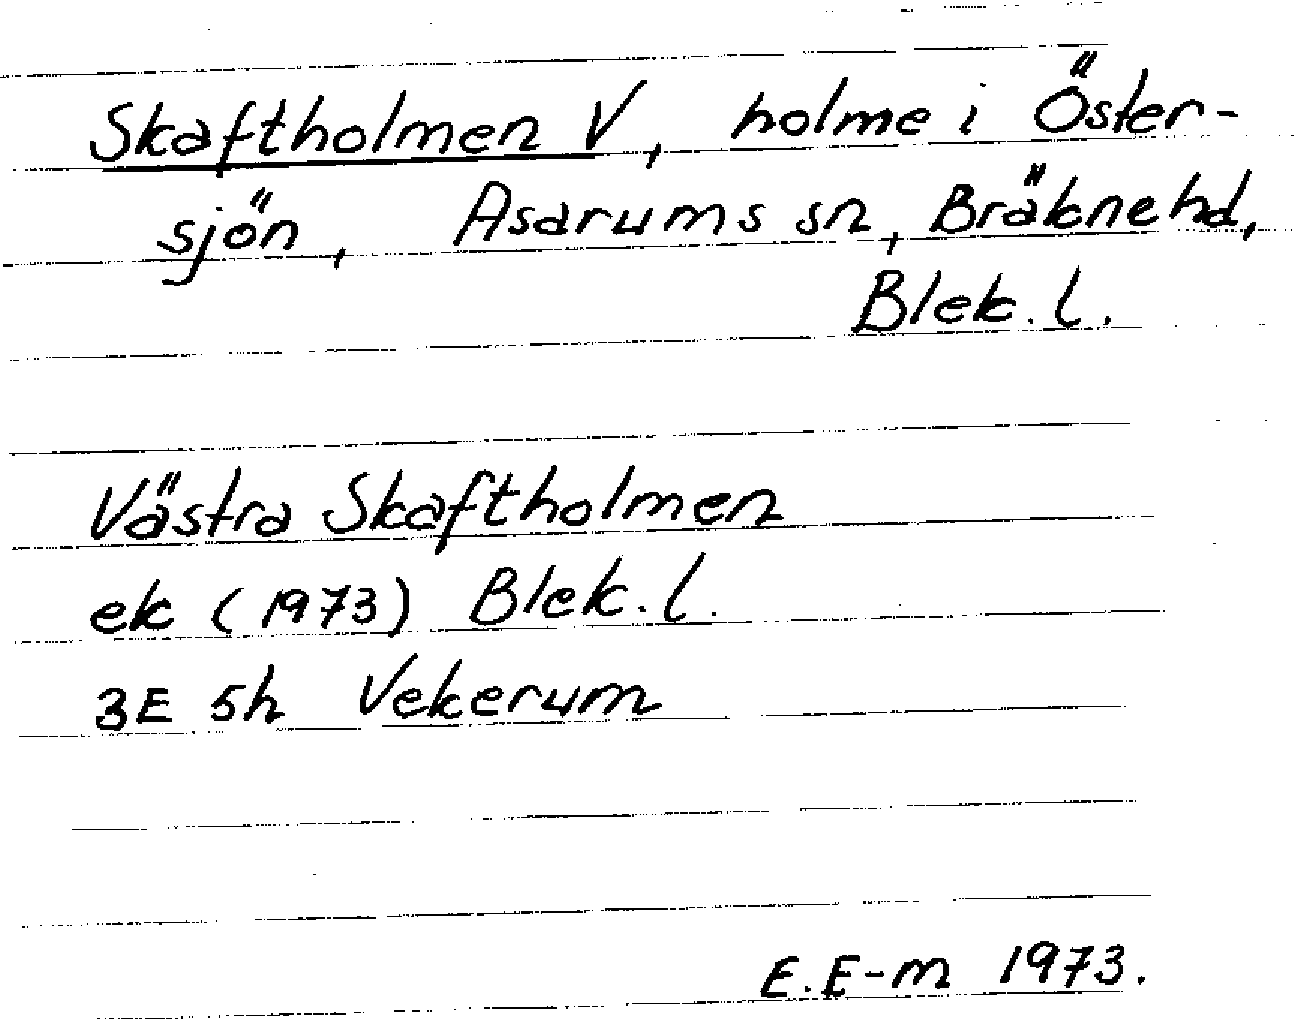 Skaftholmen V, holme i Öster-
sjön, Asarums sn, Bräkne hd,
Blek. l.
Västra Skaftholmen
ek (1973) Blek. l.
3E 5h Vekerum
E. E-m 1973.